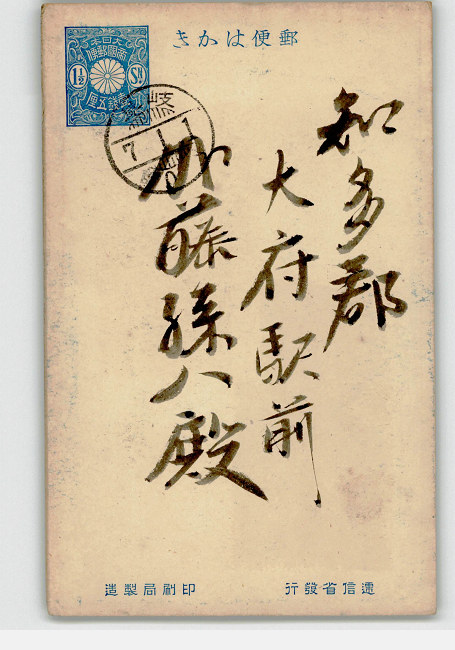 郵便はかき
大日本
帝國郵便
1½ Sn
壹錢五厘
岐阜
7 1 1
知多郡
大府駅前
加藤孫八殿
遞信省發行
印刷局製造